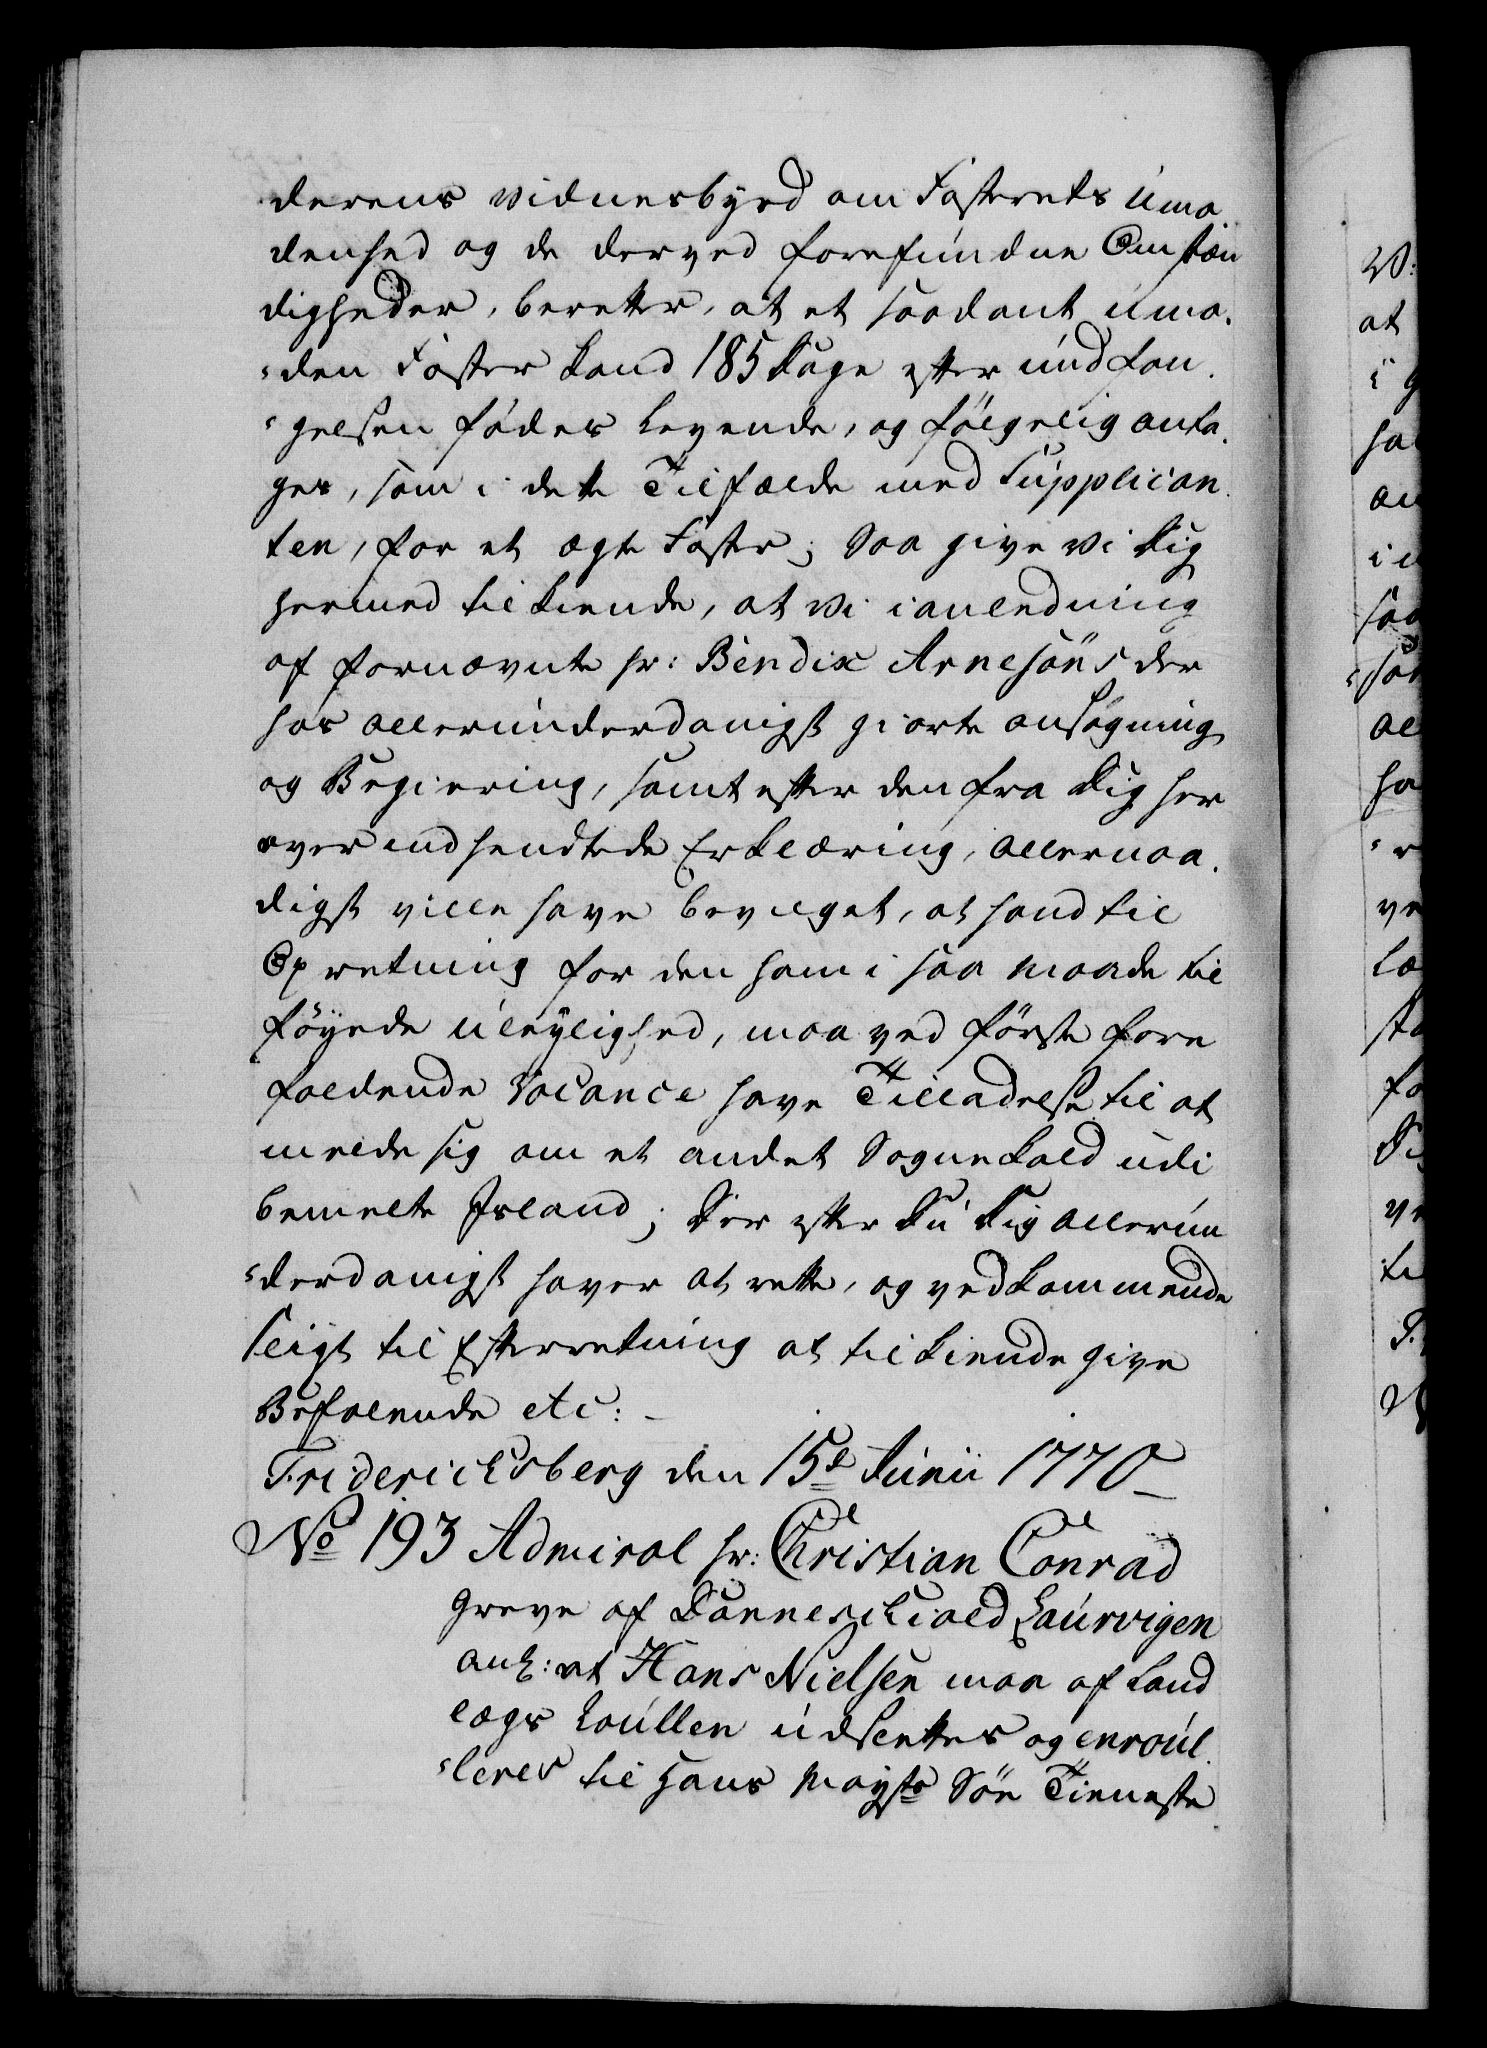 derens vidnesbyrd om Fosterets uma¬
denhed og de derved forefundne Omstæn
digheder, beretter, at et saadant uma¬
den Foster kand 185 Dage efter undfan¬
gelsen födes levende, og fölgelig anta¬
ges, som i dette Tilfælde med Supplican
ten, for et ægte Foster; Saa give Vi Dig
hermed tilkiende, at Vi i anledning
af fornævnte hr: Bendix Arnesöns der
hos allerunderdanigst giorte ansögning
og Begiering, samt efter den fra Dig her
over indsendtede Erklæring, allernaa¬
digst ville have bevilget, at hand til
Opretning for den ham i saa maade til
föyede uleylighed, maa ved förste fore
faldende Vacance have Tilladelse til at
melde sig om et andet Sognekald udi
bemelte Island; Der efter Du Dig allerun
derdanigst haver at rette, og vedkommende
sligt til Efterretning at tilkiende give
Befalende etc:
Friderichsberg den 15de Junii 1770
No 193 Admiral hr: Christian Conrad
Greve af Danneschiold Laurvigen
anl: at Hans Nielsen maa af Land
lægs Roullen udslettes og enroul
leres til Hans Mayts Söe Tieneste